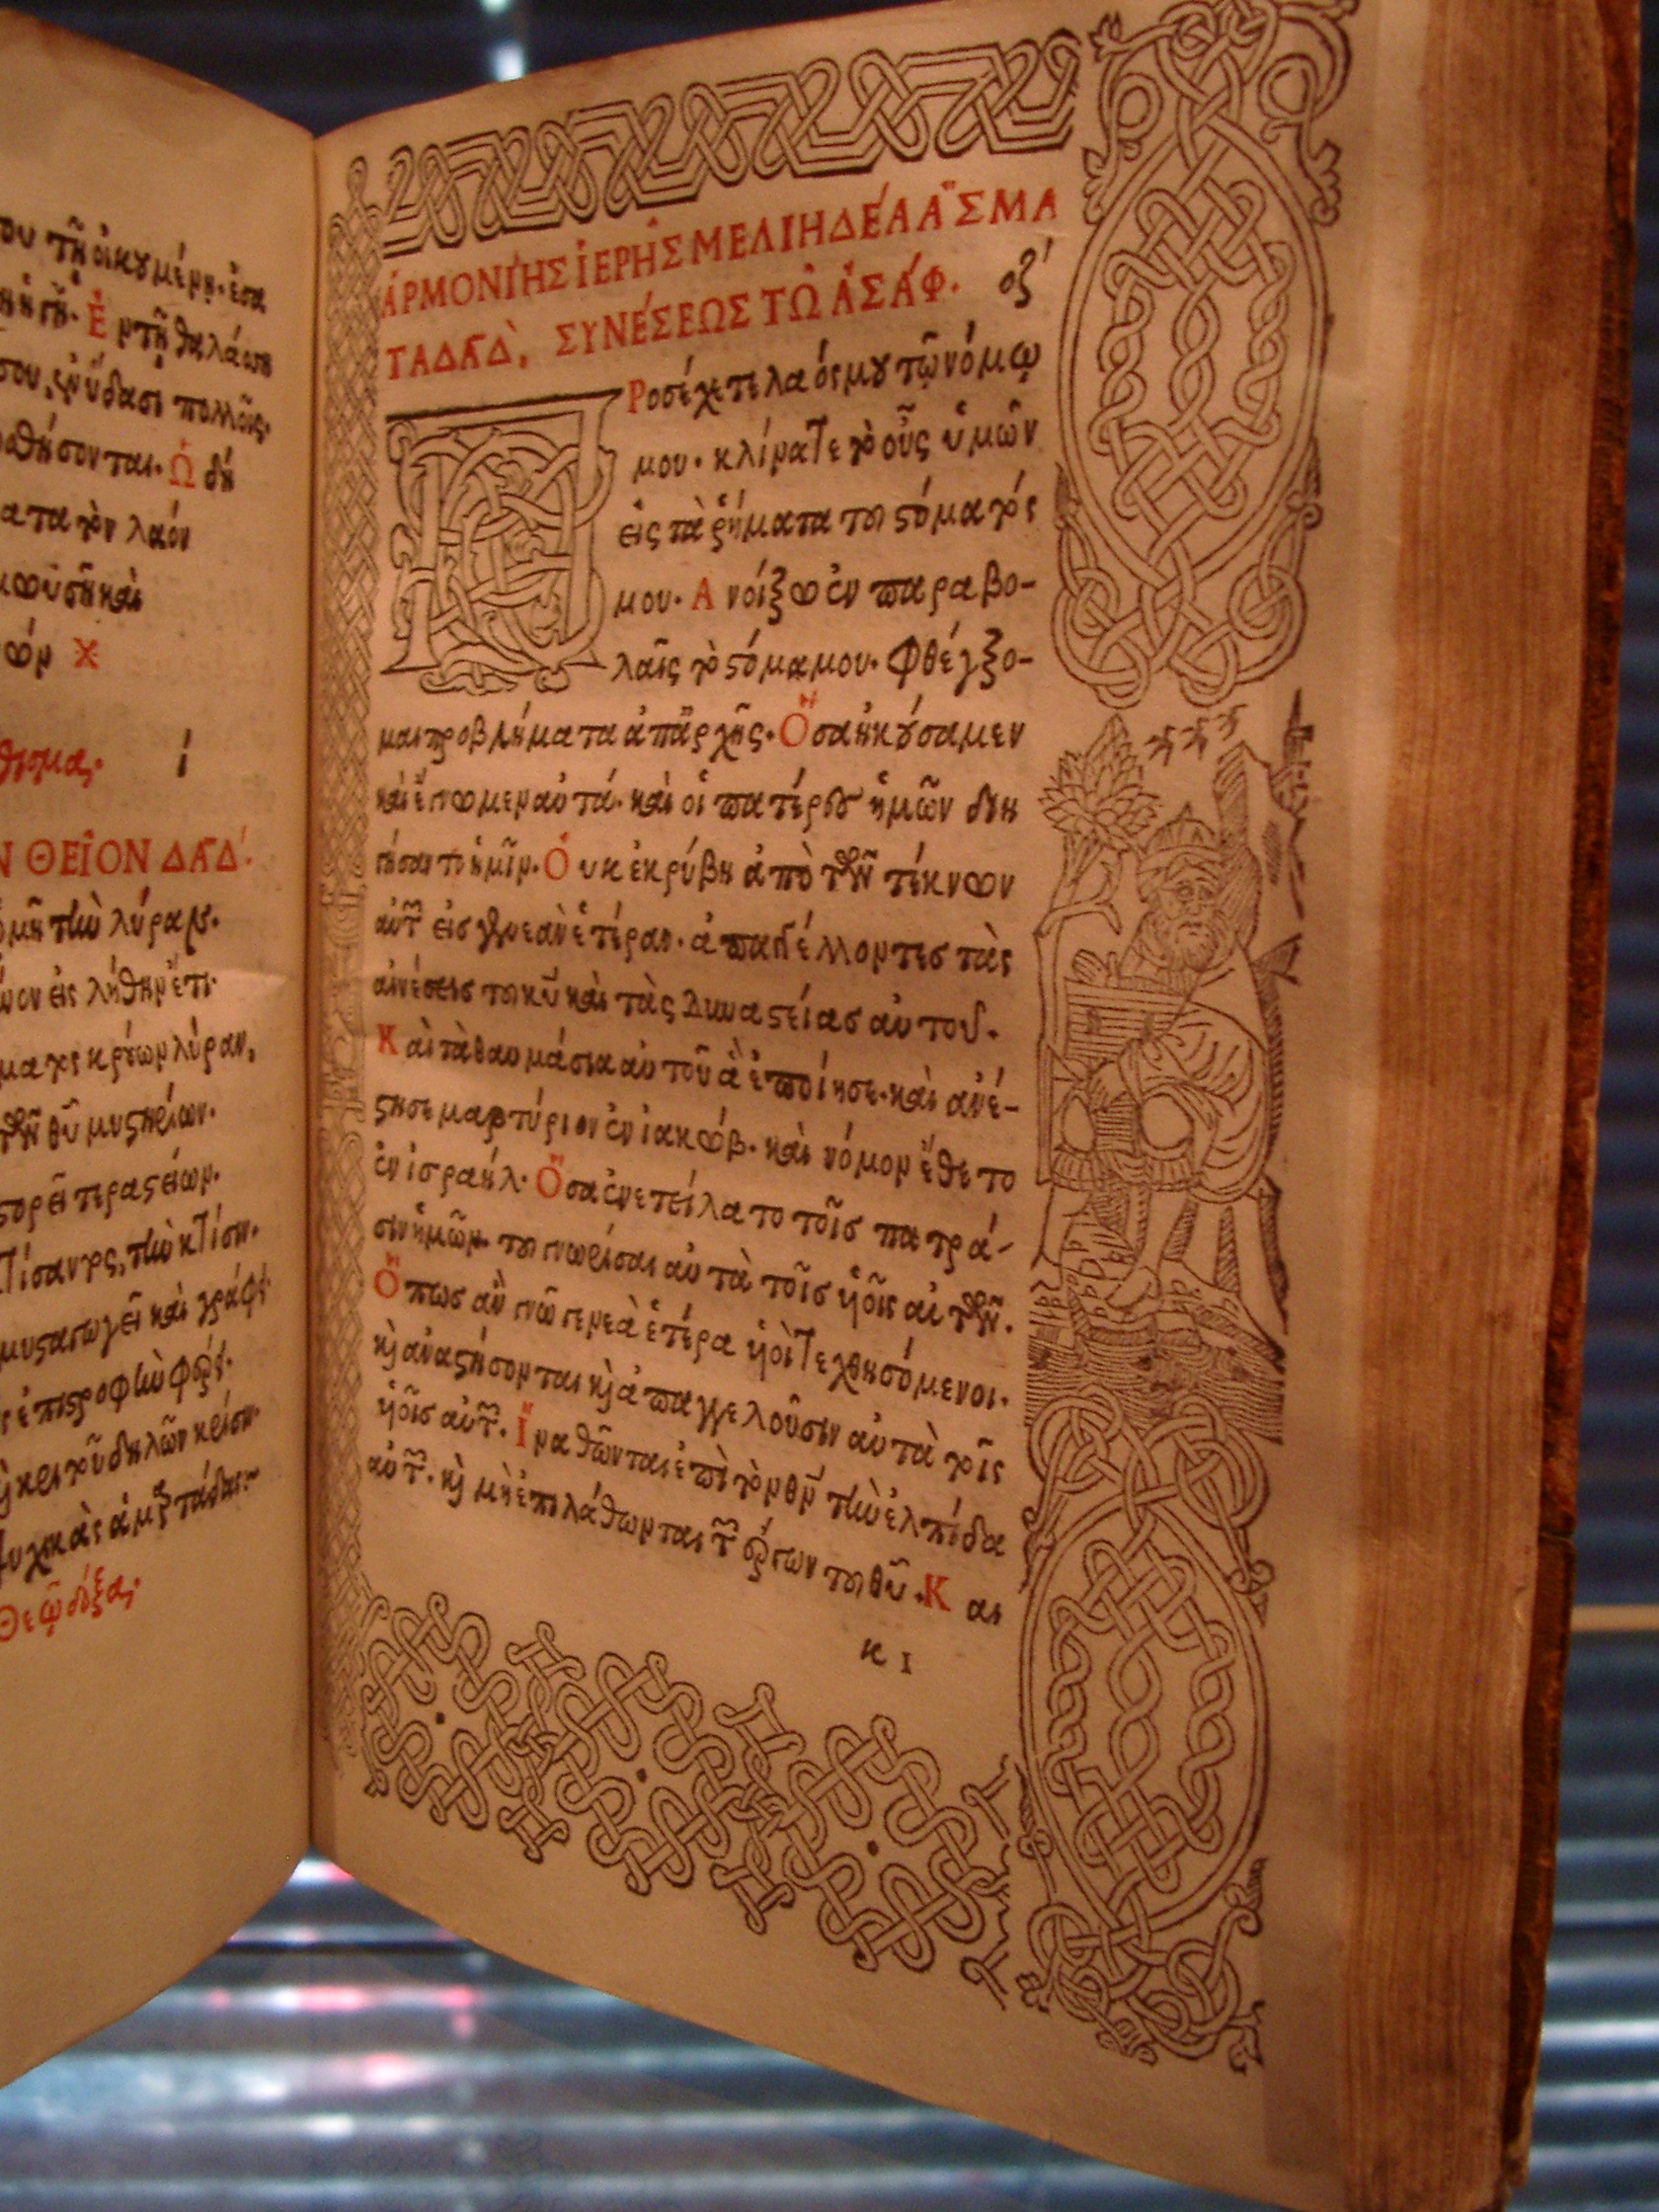 ου τῇ οἰκουμένῃ· ἔσα
Ἐ ν τῇ θαλάσσῃ
σου, ἐν ὕδασι πολλοῖς·
θήσονται· Ὡ δή
ατα τὸν λαόν
μωυσῆ καὶ
ρών χ
θισμα· ί
Ν ΘΕΙ͂ΟΝ ΔΑ͞Δ·
τὴν λύραν·
ον εἰς λήθην ἔτι·
κρούων λύραν,
τῶν θῦ μυστηρίων·
τεραστίων·
τὴν κτίσιν·
μυσταγωγεῖ καὶ γράφει·
ἐπιστροφὴν φορᾶς·
δηλῶν κρίσιν·
Θεῷ δόξα·
ἉΡΜΟΝΊΗΣ ἹΕΡΗ͂Σ ΜΕΛΙΗΔΈΑ ἌΣΜΑ
ΤΑ ΔΑ͞Δ, ΣΥΝΈΣΕΩΣ ΤΩ͂ ἈΣΆΦ· οζ´
Π Ροσέχετε λαός μου τῷ νόμῳ
μου· κλίνατε τὸ οὖς ὑμῶν
εἰς τὰ ῥήματα τοῦ στόματός
μου· Α νοίξω ἐν παραβο-
λαῖς τὸ στόμα μου· φθέγξο-
μαι προβλήματα ἀπ' ἀρχῆς· Ὅ σα ἠκούσαμεν
καὶ ἔγνωμεν αὐτά· καὶ οἱ πατέρες ἡμῶν διη
γήσαντο ἡμῖν· Ὀ υκ ἐκρύβη ἀπὸ τῶν τέκνων
αὐτῶν εἰς γενεὰν ἑτέραν· ἀπαγγέλλοντες τὰς
αἰνέσεις τοῦ κῦ καὶ τὰς δυναστείας αὐτοῦ·
Κ αὶ τὰ θαυμάσια αὐτοῦ ἃ ἐποίησε· καὶ ἀνέ-
στησε μαρτύριον ἐν ἰακώβ· καὶ νόμον ἔθετο
ἐν ἰσραήλ· Ὅ σα ἐνετείλατο τοῖς πατρά-
σιν ἡμῶν· τοῦ γνωρίσαι αὐτὰ τοῖς υἱοῖς αὐτῶν·
Ὅ πως ἂν γνῶ γενεὰ ἑτέρα υἱοὶ τεχθησόμενοι·
καὶ ἀναστήσονται καὶ ἀπαγγελοῦσιν αὐτὰ τοῖς
υἱοῖς αὐτῶν· Ἵ να θῶνται ἐπὶ τὸν θν͂ τὴν ἐλπίδα
αὐτῶν· καὶ μὴ ἐπιλάθωνται τῶν ἔργων τοῦ θῦ· Κ αι
κ ι